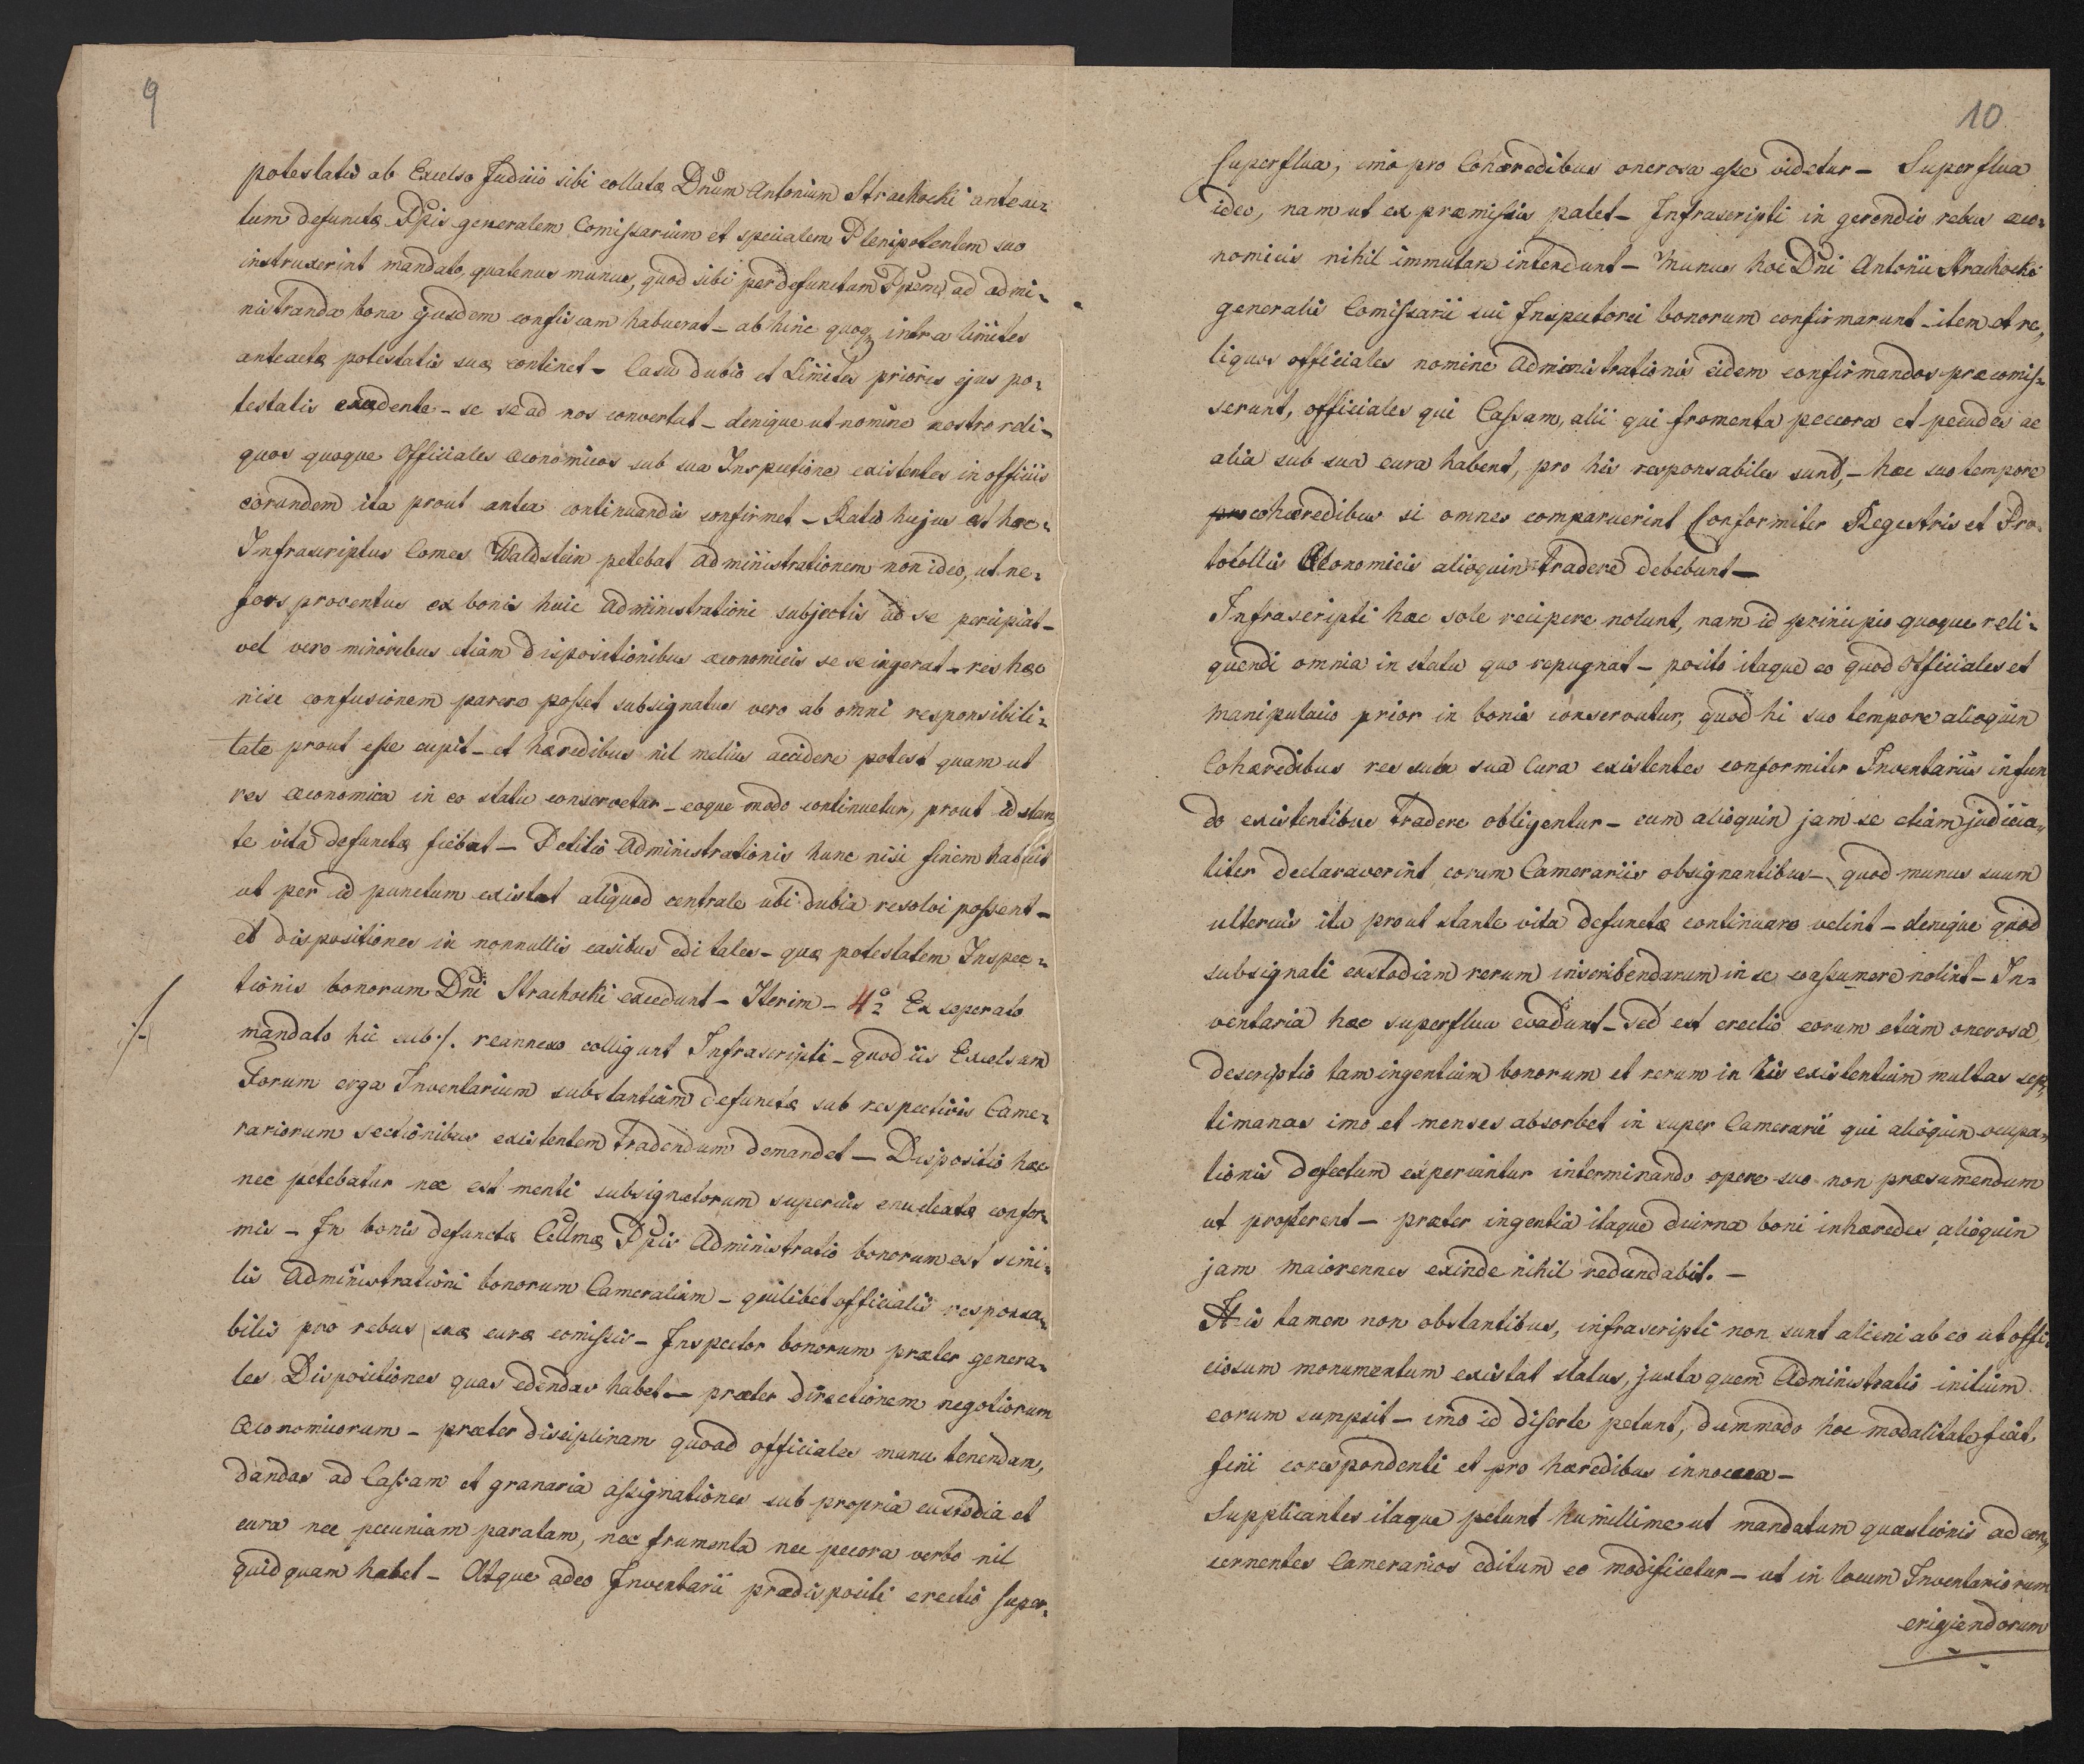 9
potestatis ab Excelso Judicio sibi collatæ Dnum Antonium Strachocki anteac=
tum defunctæ Ppis generalem Comissarium et specialem Plenipotentem suo
instruxerint mandato, quatenus munus, quod sibi per defunctam Ppem ad admi=
nistranda bona ejusdem confisum habuerat – ab hinc quoq intra limites
anteactæ potestatis suæ continet – Casu dubio et Limites priores ejus po=
testatis excedente – se se ad nos convertat – denique ut nomine nostro reli=
quos quoque Officiales œconomicos sub sua Inspectione existentes in officiis
eorundem ita prout antea continuandis confirmet – Ratio hujus est hæc:
Infrascriptus Comes Waldstein petebat administrationem non ideo, ut ne=
fors proventus ex bonis huic administrationi subjectis ad se percipiat –
vel vero minoribus etiam dispositionibus œconomicis se se ingerat – res hæc
nisi confusionem parere posset subsignatus vero ab omni responsibili=
tate prout esse cupit – et hæredibus nil melius accidere potest quam ut
res œconomica in eo statu conservetur – eoque modo continuetur, prout id stan
te vita defunctæ fiebat – Petitio Administrationis hunc nisi finem habuit
ut per id punctum existat aliquod centrale ubi dubia resolvi possent –
et dispositiones in nonnullis casibus edi tales – quæ potestatem Inspec=
tionis bonorum Dni Strachocki excedunt – Iterim – 4º Ex seperato
·/·
mandato hic sub ·/. reannexo colligunt Infrascripti – quod iis Excelsum
Forum erga Inventarium substantiam defunctæ sub respectivis Came=
rariorum sectionibus existentem tradendum demandet – Dispositio hæc
nec petebatur nec est menti subsignatorum superius enucleatæ confor=
mis – In bonis defunctæ Cellmæ Ppis Administratio bonorum est simi=
lis Administrationi bonorum Cameralium – quilibet officialis responsa=
bilis pro rebus suæ curæ comissis – Inspector bonorum præter genera=
les Dispositiones quas edendas habet – præter directionem negotiorum
œconomicorum – præter disciplinam quoad officiales manu tenendam,
dandas ad Cassam et granaria assignationes sub propria custodia et
cura nec pecuniam paratam, nec frumenta nec pecora verbo nil
quidquam habet – Atque adeo Inventarii prædispositi erectio super=
10
superflua, imo pro Cohæredibus onerosa esse videtur – Superflua
ideo, nam ut ex præmissis patet – Infrascripti in gerendis rebus œco=
nomicis nihil immutare intendunt – Munus hoc Dni Antonii Strachocki
generalis Comissarii sui Inspectorei bonorum confirmarunt – item et re=
liquos officiales nomine Administrationis eidem confirmandos præcomis=
serunt, officiales qui Cassam, alii qui fromenta peccora et pecudes ac
alia sub sua cura habent, pro his responsabiles sunt, – hæc suo tempore
pro cohæredibus si omnes comparuerint Conformiter Regestris et Pro=
tocollis Œconomicis alioquin tradere debebunt –
Infrascripti hæc sole recipere nolunt, nam id principio quoque reli=
quendi omnia in statu quo repugnat – posito itaque eo quod Officiales et
manipulacio prior in bonis conservatur, quod hi suo tempore alioquin
Cohæredibus res sub sua Cura existentes conformiter Inventariis in fun
do existentibus tradere obligentur – cum alioquin jam se etiam judicia=
liter declaraverint corum Camerariis obsignantibus – quod munus suum
ulterius ita prout stante vita defunctæ continuare velint – denique quod
subsignati custodiam rerum inscribendarum in se coassumere nolint – In=
ventaria hæc superflua evadunt – Sed est erectio eorum etiam onerosa
descriptio tam ingentium bonorum et rerum in his existentium multas sep=
timanas imo et menses absorbet in super Camerarii qui alioquin ocupa=
tionis defectum experiuntur interminando opere suo non præsumendum
ut properent – præter ingentia itaque diurna boni inhæredes alioquin
jam maiorennes exinde nihil redundabit. –
His tamen non obstantibus, infrascripti non sunt alieni ab eo ut offi=
ciosum monumentum existat status, juxta quem Administratio initium
eorum sumpsit – imo id diserte petunt, dummodo hoc modalitate fiat,
fini corespondenti et pro hæredibus innocua –
Supplicantes itaque petunt humillime ut mandatum quæstionis ad con=
cernentes Camerarios editum eo modificetur – ut in locum Inventariorum
erigiendorum